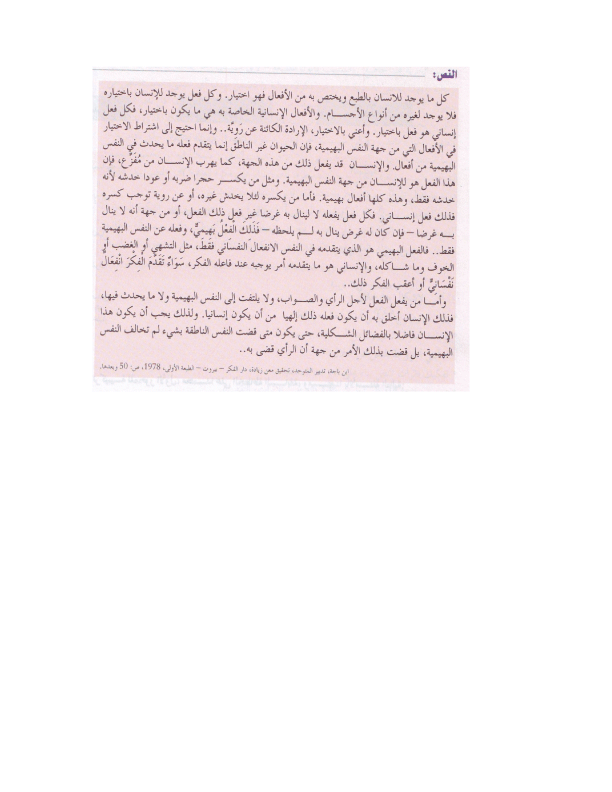 النص:
كل ما يوجد للانسان بالطبع ويختص به من الأفعال فهو اختيار. وكل فعل يوجد للإنسان باختياره
فلا يوجد لغيره من أنواع الأجسام. والأفعال الإنسانية الخاصة به هي ما يكون باختيار، فكل فعل
إنساني هو فعل باختيار. وأعني بالاختيار، الإرادة الكائنة عن رَوِيَّة.. وإنما احتيج إلى اشتراط الاختيار
في الأفعال التي من جهة النفس البهيمية، فإن الحيوان غير الناطق إنما يتقدم فعله ما يحدث في النفس
البهيمية من أفعال. والإنسان قد يفعل ذلك من هذه الجهة، كما يهرب الإنسان من مُفَزِّع، فإن
هذا الفعل هو للإنسان من جهة النفس البهيمية. ومثل من يكسر حجرا ضربه أو عودا خدشه لأنه
خدشه فقط، وهذه كلها أفعال بهيمية. فأما من يكسره لئلا يخدش غيره، أو عن روية توجب كسره
فذلك فعل إنساني. فكل فعل يفعله لا لينال به غرضا غير فعل ذلك الفعل، أو من جهة أنه لا ينال
به غرضا – فإن كان له غرض ينال به لم يلحظه – فَذَلكَ الْفعْلُ بَهِيميٌّ، وفعله عن النفس البهيمية
فقط.. فالفعل البهيمي هو الذي يتقدمه في النفس الانفعال النفساني فقط، مثل التشهي أو الغضب أو
الخوف وما شاكله، والإنساني هو ما يتقدمه أمر يوجبه عند فاعله الفكر، سَوَاءٌ تَقَدَّمَ الْفكْرَ انْفِعَالٌ
نَفْسَانِيٌّ أو أعقب الفكر ذلك..
وأما من يفعل الفعل لأجل الرأي والصواب، ولا يلتفت إلى النفس البهيمية ولا ما يحدث فيها،
فذلك الإنسان أخلق به أن يكون فعله ذلك إلهيا من أن يكون إنسانيا. ولذلك يجب أن يكون هذا
الإنسان فاضلا بالفضائل الشكلية، حتى يكون متى قضت النفس الناطقة بشيء لم تخالف النفس
البهيمية، بل قضت بذلك الأمر من جهة أن الرأي قضى به..
ابن باجة، تدبير المتوحد، تحقيق معن زيادة، دار الفكر – بيروت – الطبعة الأولى، 1978، ص: 50 وبعدها.